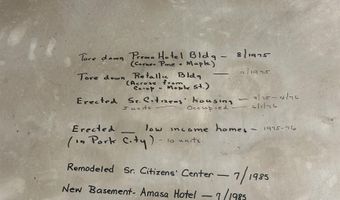 Tore down Premo Hotel Bldg — 8/1975
(Corner Pine + Maple)
Tore down Retallic Bldg — /1975
(Across from
Co-op - Maple St.)
Erected Sr. Citizens' housing —
units — Occupied
Erected — low income homes — 1975-76
(in Park City) - 10 units
Remodeled Sr. Citizens' Center — 7/1985
New Basement - Amasa Hotel — 7/1985